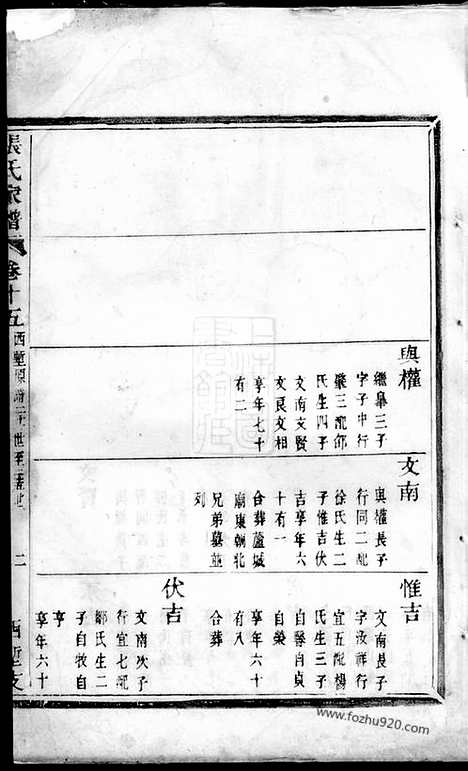 與權
繼臯三子
字子中行
榘三配邵
氏生四子
文南文賢
文良文相
享年七十
有二
文南
與權長子
行同二配
徐氏生二
子惟吉伏
吉享年六
十有一
合葬蘆城
廟東朝北
兄弟墓並
列
惟吉
文南長子
字汝祥行
宜五配楊
氏生三子
自馨自貞
自榮
享年六十
有八
合葬
伏吉
文南次子
行宜七配
鄒氏生二
子自牧自
亨
享年六十
張氏家譜
卷十五
二
西塹支
www.fozhu920.com